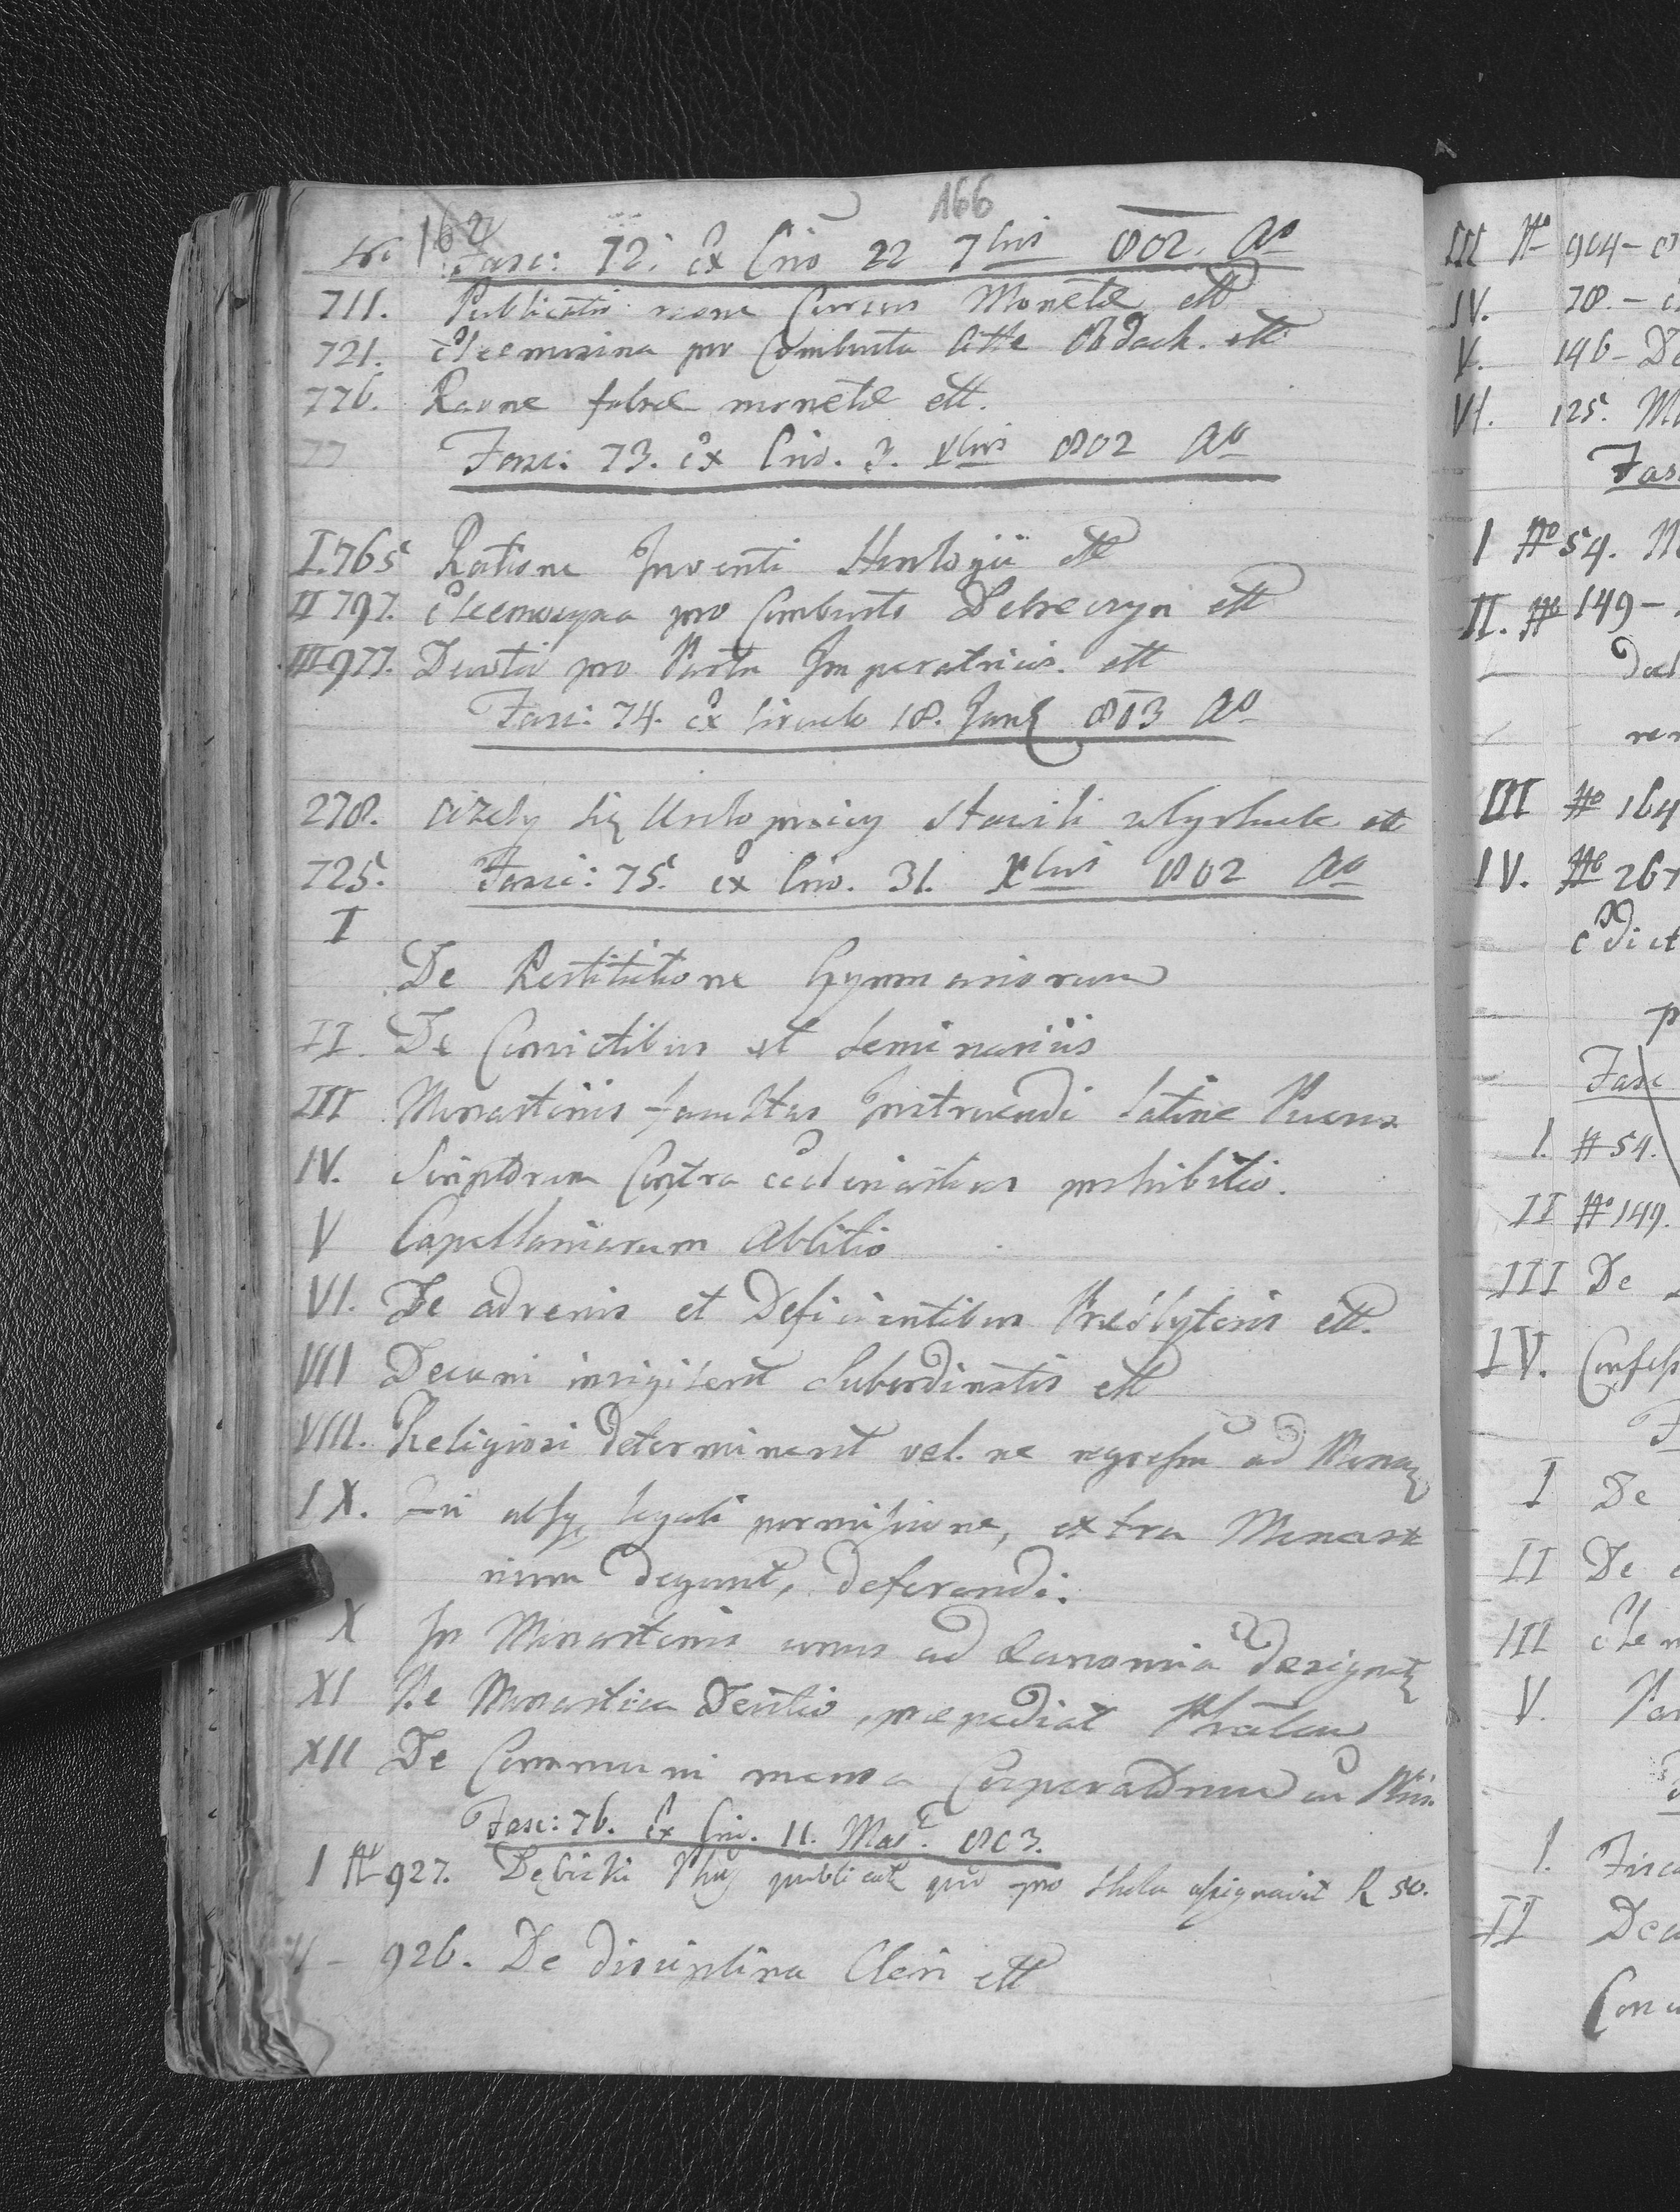 166
162
Nr. Fasc: 72. Ex Crio 22 7bris 802. Ao
711. Publicatio raone Cursus Monetæ ett
721. Eleemosina pro Combusta Obdach. ett
776. Raone falsæ monetæ ett.
77 Fasc: 73. Ex Crio. 3. Xbris 802 Ao
I. 765 Ratione Inventi Horlogii ett
II 797. Eleemosyna pro Combusto Debreczyn ett
III 977. Devotio pro Partu Imperatricis. ett
Fasc: 74. Ex Circulo 18. Janu 803 Ao
278. Ażeby się Urlopnicy stawili ett
725. Fasc: 75. Ex Crio. 31. Xbris 802 Ao
I
De Restitutione Gymnasiorum
II. De Convictibus et Seminariis
III Monasteriis facultas Instruendi Latine Pueros
IV. Scriptorum Contra Ecclesiasticos prohibitio.
V Capellaniarum Ablitio
VI. De advenis et Deficientibus Præsbyteris ett.
VII Decani invigilent Subordinatis ett
VIII. Religiosi determinent vel. ne regressu ad Monas
IX. Qui absq legali permissione, extra Monaste
rium degunt, deferendi.
X In Monasteriis unus ad Œconomia designat
XI Ne Monastica Devotio, præpediat
XII De Communi mensa Cooperatorum cu
Fasc: 76. Ex Crio. 11. Mar. 803.
I No 927. Dębicki publicat quod pro Schola assignavit R 50.
II - 926. De disciplina Cleri ett
III No 904-
IV. 78. -
V. 146-
VI. 125.
Fasc
I No 54.
II. No 149-
III No 164
IV. No 267
Edict
Fasc
I. # 54.
II No 149.
III De
IV. Confess
I De
II De
III
V.
I.
II